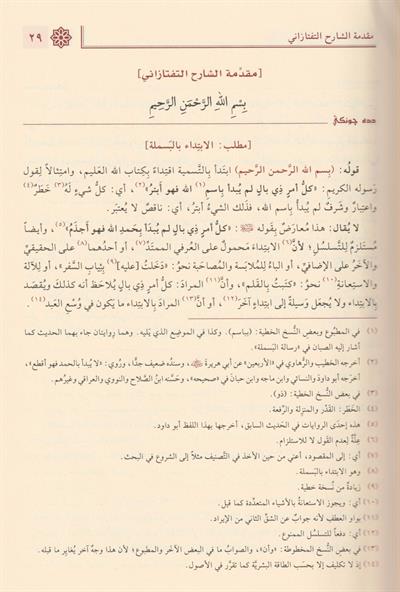 مقدمة الشارح التفتازاني
٢٩
[مقدّمة الشارح التفتازاني]
بِسْمِ اللهِ الرَّحْمَنِ الرَّحِيمِ
دده جونكي
[مطلب: الابتداء بالبسملة]
قولُه: (بسمِ الله الرَّحمنِ الرَّحيمِ) ابتَدأ بالتَّسمية اقتِداءً بكِتاب الله العَليم، وامتِثالًا لِقول
رَسوله الكريم: «كلُّ أمرٍ ذِي بالٍ لم يُبدأ باسم(١) الله فهو أبترُ»(٢)، أي: كلُّ شيءٍ لَه(٣) خَطَرٌ(٤)
واعتِبارٌ وشَرفٌ لم يُبدأ باسم الله، فذلك الشيءُ أبترُ، أي: ناقصٌ لا يُعتبَر.
لا يُقال: هذا مُعارَضٌ بِقَولِه ﷺ: «كلُّ أمرٍ ذِي بالٍ لم يُبدَأ بِحَمدِ الله فهو أَجذَمُ»(٥)، وأيضاً
مُستَلزِمٌ لِلتَّسلسُلِ؛ لأنَّ(٦) الابتداءَ مَحمولٌ على العُرفي الممتدِّ(٧)، أو أحدُهما(٨) على الحقيقيِّ
والآخَرُ على الإضافيِّ، أو الباءُ لِلمُلابَسة والمُصاحَبة نحوُ: «دَخلْتُ [عليه](٩) بِثِيابِ السَّفَرِ»، أو لِلآلة
والاستِعانةِ(١٠) نحوُ: «كتَبتُ بالقَلم»، وأنَّ(١١) المرادَ: كلُّ أمرٍ ذِي بالٍ يُلاحَظ أنه كذلك ويُقصَد
بالابتِداء ولا يُجعَل وَسيلةً إلى ابتِداءِ آخَرَ(١٢)، أو أنَّ(١٣) المرادَ بالابتِداء ما يكون في وُسْع العَبد(١٤).
(١) في المطبُوع وبعض النُّسخ الخطية: (ببِاسم). وكذا في الموضِع الذي يَليه. وهما رِوايتان جاء بهما الحديث كما
أشار إليه الصبان في «رسالة البَسملة».
(٢) أخرَجه الخَطيب والرَّهاوي في «الأربعين» عن أبي هريرة ﷺ، وسندُه ضعيف جدًّا، ورُوِي: «لا يُبدأ بالحمد فهو أقطع»،
أخرَجه أبو داودَ والنسائي وابن ماجه وابن حبان في «صحيحه»، وحَسَّنه ابنُ الصَّلاح والنووي والعراقي وغيرُهم.
(٣) في بعض النُّسخ الخطية: (ذو).
(٤) الخَطَر: القَدْر والمنزلة والرِّفعة.
(٥) هذه إحدَى الروايات في الحَديث السابق، أخرجها بهذا اللفظ أبو داود.
(٦) عِلَّةٌ لِعدم القَول لا للاستِلزام.
(٧) أي: إلى المقصود، أعني من حين الأخذ في التَّصنيف مثلاً إلى الشروع في البحث.
(٨) وهو الابتداء بالبَسملة.
(٩) زيادةٌ من نُسخة خطية.
(١٠) أي: ويجوز الاستعانةُ بالأشياء المتعدِّدة كما قيل.
(١١) بواو العَطف لأنه جوابٌ عن الشقّ الثاني من الإيراد.
(١٢) أي: دفعاً للتَّسلسُل الممنوع.
(١٣) في بعض النُّسخ المخطوطة: «وأن»، والصوابُ ما في البعض الآخَر والمطبوع؛ لأن هذا وجهٌ آخَر يُغايِر ما قبله.
(١٤) إذ لا تكليف إلا بحسب الطاقة البشريَّة كما تقرَّر في الأصول.